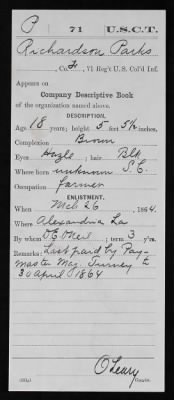 P 71 U.S.C.T.
Richardson Parks
, Co. F, 71 Reg't U.S. Col'd Inf.
Appears on
Company Descriptive Book
of the organization named above.
DESCRIPTION.
Age 18 years; height 5 feet 5½ inches.
Complexion Brown
Eyes Hazle ; hair Blk
Where born unknown S.C.
Occupation farmer
ENLISTMENT.
When Mch 26 , 1864.
Where Alexandria La
By whom ; term 3 y'rs.
Remarks: Last paid by Pay-
master Maj. Turney to
30 April 1864
O'Leary
Copyist.